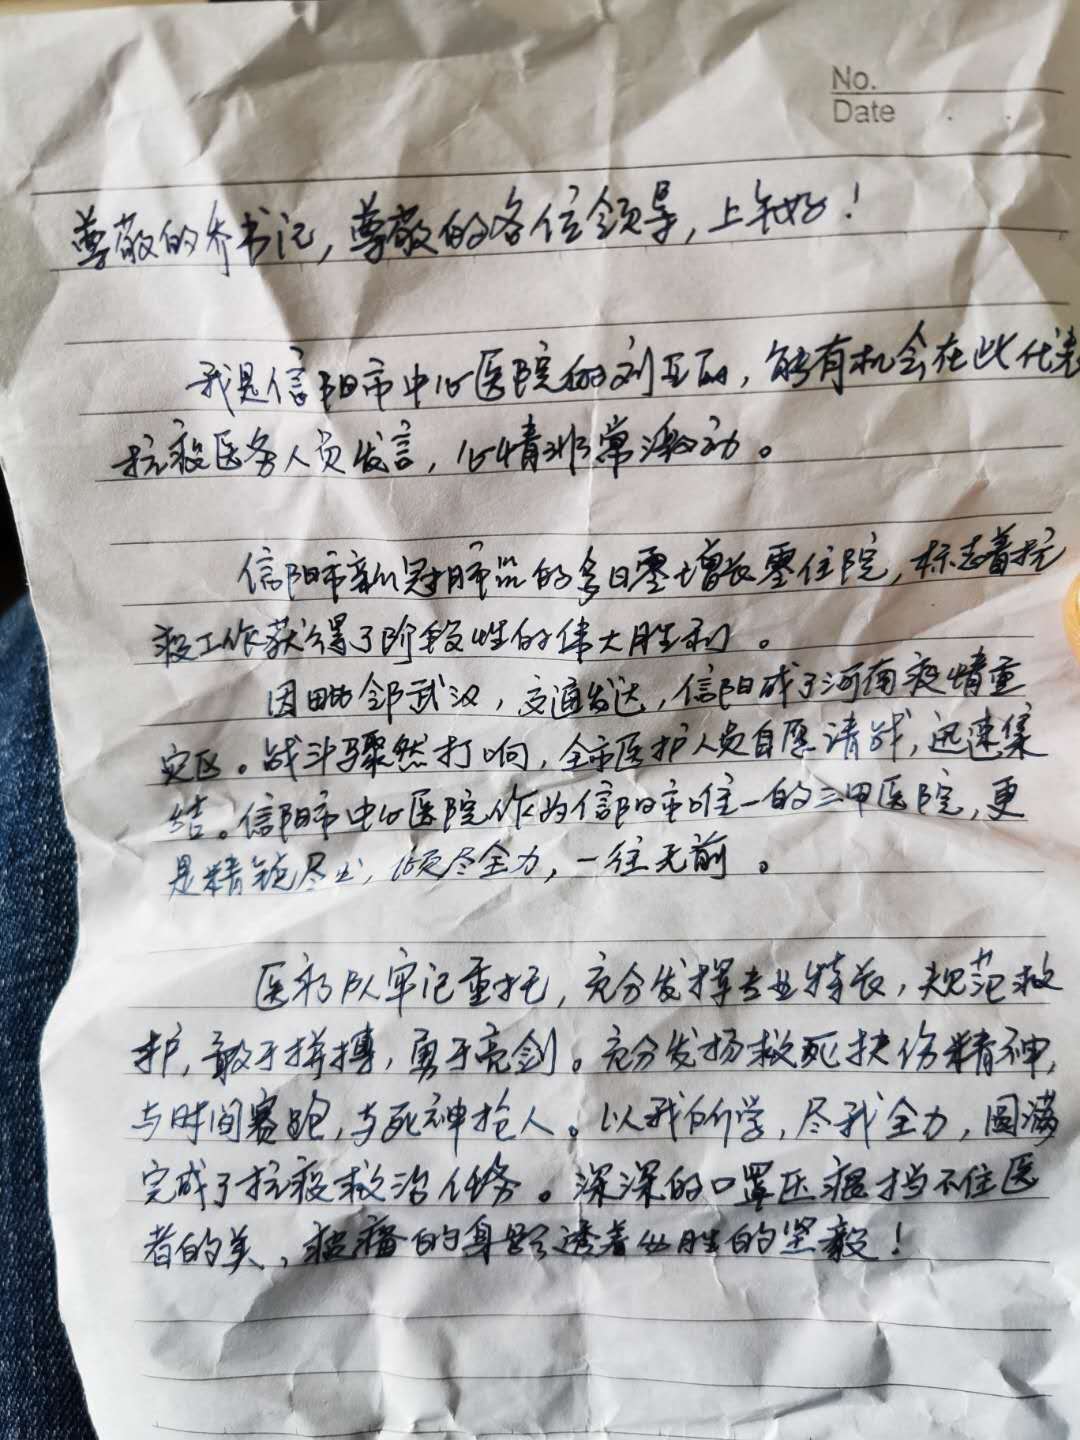 No.
Date
尊敬的乔书记,尊敬的各位领导,上午好!
我是信阳市中心医院的刘,能有机会在此代表
抗疫医务人员发言,心情非常激动。
信阳市新冠肺炎的多日零增长零住院,标志着抗
疫工作获得了阶段性的伟大胜利。
因毗邻武汉,交通发达,信阳成了河南疫情重
灾区。战斗骤然打响,全市医护人员自愿请战,迅速集
结。信阳市中心医院作为信阳市唯一的三甲医院,更
是精锐尽出,倾尽全力,一往无前。
医疗队牢记重托,充分发挥专业特长,规范救
护,敢于拼搏,勇于亮剑。充分发扬救死扶伤精神,
与时间赛跑,与死神抢人。以我所学,尽我全力,圆满
完成了抗疫救治任务。深深的口罩压痕挡不住医
者的美,疲惫的身影透着必胜的坚毅!